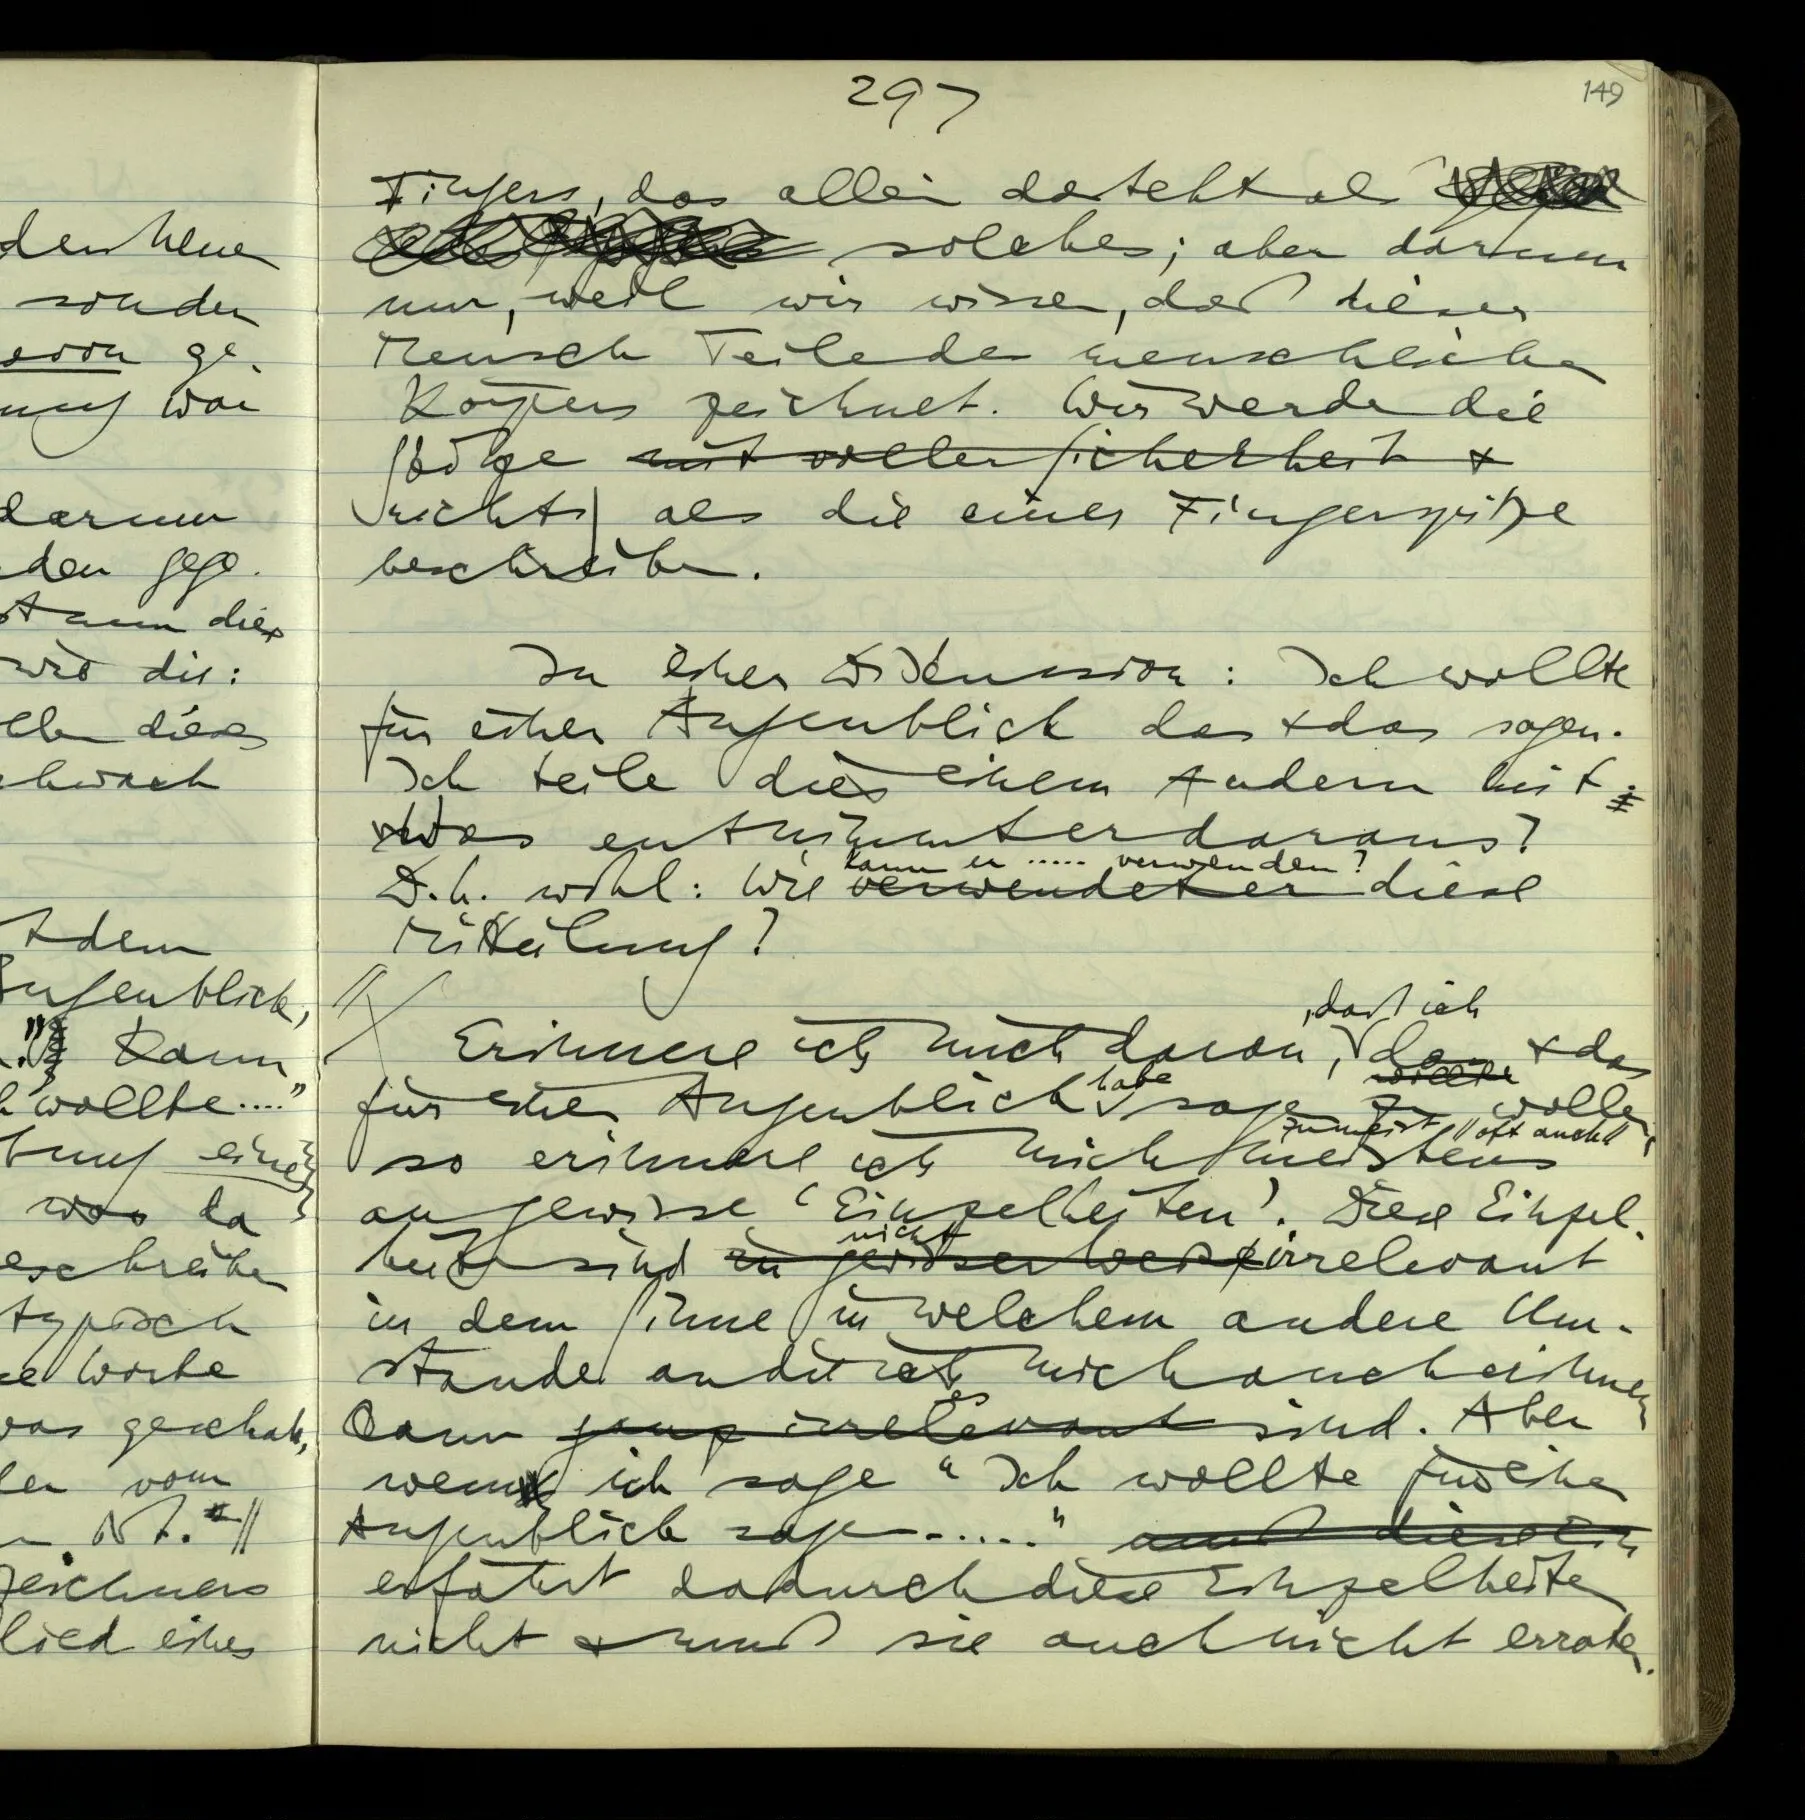 denkenen
sondern
ge-
war
darum
den gege-
nun dies
wie die:
dieses
schwach
dem
Augenblick,
." Kann
wollte...."
eines
was da
beschreiben
typisch
Worte
was geschah,
vom
N.
Zeichners
Glied eines
297
149
Fingers, das allein dasteht als
solches; aber darum
nur, weil wir wissen, daß dieser
Mensch Teile des menschlichen
Körpers zeichnet. Wir werden die
Skizze mit voller Sicherheit &
richtig als die einer Fingerspitze
beschreiben.
In einer Diskussion: Ich wollte
für einen Augenblick das & das sagen.
Ich teile dies einem Andern mit.
Was entnimmt er daraus?
kann er ..... verwenden?
D.h. wohl: Wie verwendet er diese
Mitteilung?
, daß ich
Erinnere ich mich daran, das & das
wollte
habe
für einen Augenblick sagen zu wollen,
zumeist "oft auch"
so erinnere ich mich meistens
an gewisse 'Einzelheiten'. Diese Einzel-
nicht
heiten sind in gewisser Weise irrelevant
in dem Sinne in welchem andere Um-
stände an die ich mich auch erinnern
es
kann ganz irrelevant sind. Aber
wem ich sage "Ich wollte für einen
Augenblick sagen ....."
erfährt dadurch diese Einzelheiten
nicht & muß sie auch nicht erraten.